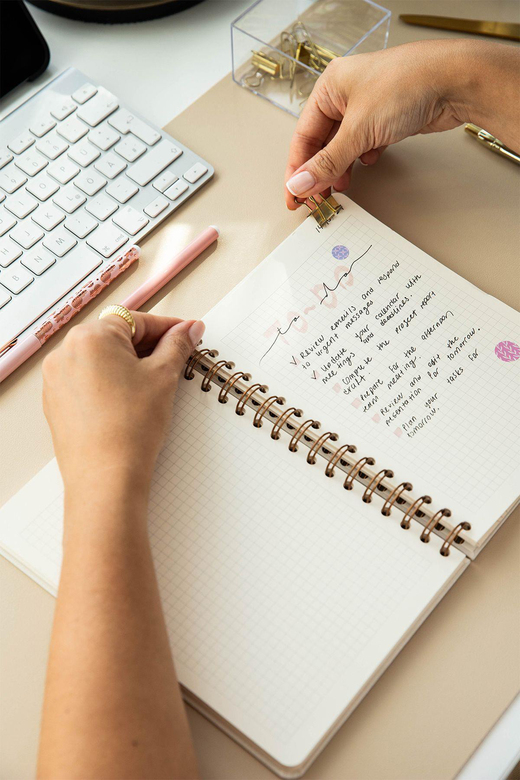 TO-DO
to do
✓ Review emails and respond
to urgent messages
✓ Update your calendar with
meetings and deadlines.
Complete the project report
draft.
Prepare for the afternoon
team meeting.
Review and edit the
presentation for tomorrow.
Plan your tasks for
tomorrow.